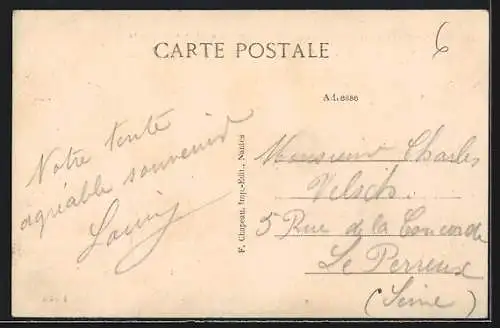 CARTE POSTALE
6
Adresse
Notre tente
agréable souvenir
F. Chapeau, Imp.-Edit., Nantes
Monsieur Charles
Velsch
5 Rue de la Concorde
Le Perreux
(Seine)